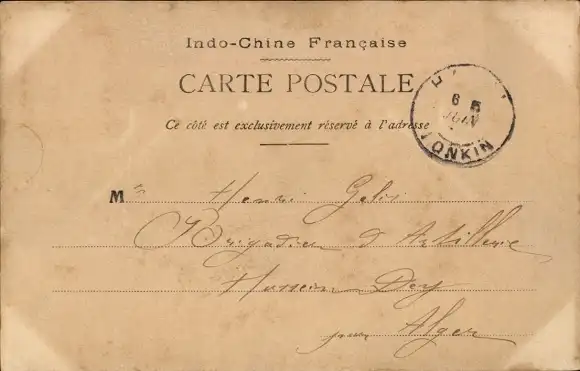 Indo-Chine Française
CARTE POSTALE
Ce côté est exclusivement réservé à l'adresse
TONKIN
M Henri Gelis
Brigadier d'Artillerie
Hussein Dey
Alger